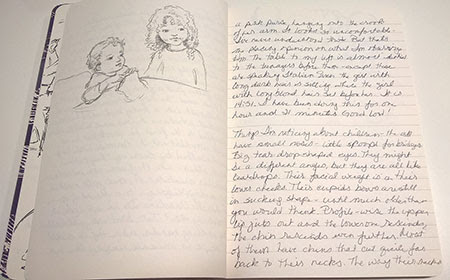 a pink purse hanging onto the crook
of her arm. It looks so uncomfortable -
I've never understood that. But that's
my opinion on what I'm observing
too. The table to my left is almost identical
to the teenagers before them - except these
are speaking Italian. Even the girl with
long dark hair is sitting where the girl
with long blond hair sat before her. It is
14:31. I have been doing this for one
hour and 21 minutes. Good lord!
Things I'm noticing about children - they all
have small noses - little spoonfuls for bridges.
Big tear-drop-shaped eyes. They might
be a different angle, but they are all like
teardrops. Their facial weight is in their
lower cheeks. Their cupids bows are still
in sucking shape - until much older than
you would think. Profile-wise the upper
lip juts out and the lower one rescinds,
the chin rescinds even further. Most
of them have chins that cut quite far
back to their necks. The way their